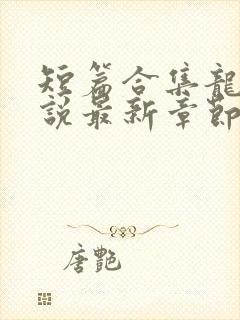 短篇合集龍
說最新章節
唐艷